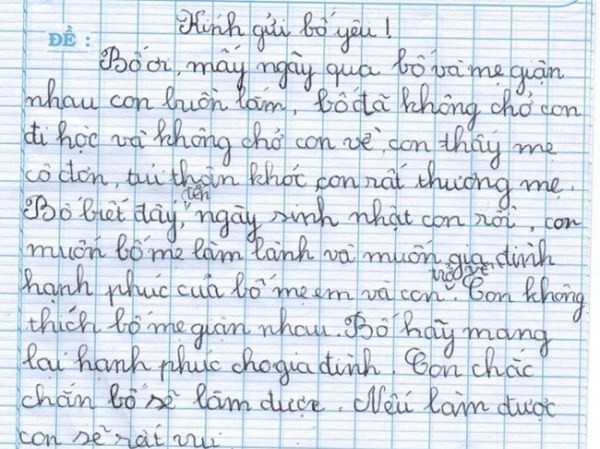 Kính gửi bố yêu!
ĐỀ:
Bố ơi, mấy ngày qua bố và mẹ giận
nhau con buồn lắm, bố đã không chở con
đi học và không chở con về, con thấy mẹ
cô đơn, tủi thân khóc, con rất thương mẹ.
Bố biết đấy, đến ngày sinh nhật con rồi, con
muốn bố mẹ làm lành và muốn gia đình
hạnh phúc của bố mẹ em và con trở về. Con không
thích bố mẹ giận nhau. Bố hãy mang
lại hạnh phúc cho gia đình. Con chắc
chắn bố sẽ làm được. Nếu làm được
con sẽ rất vui